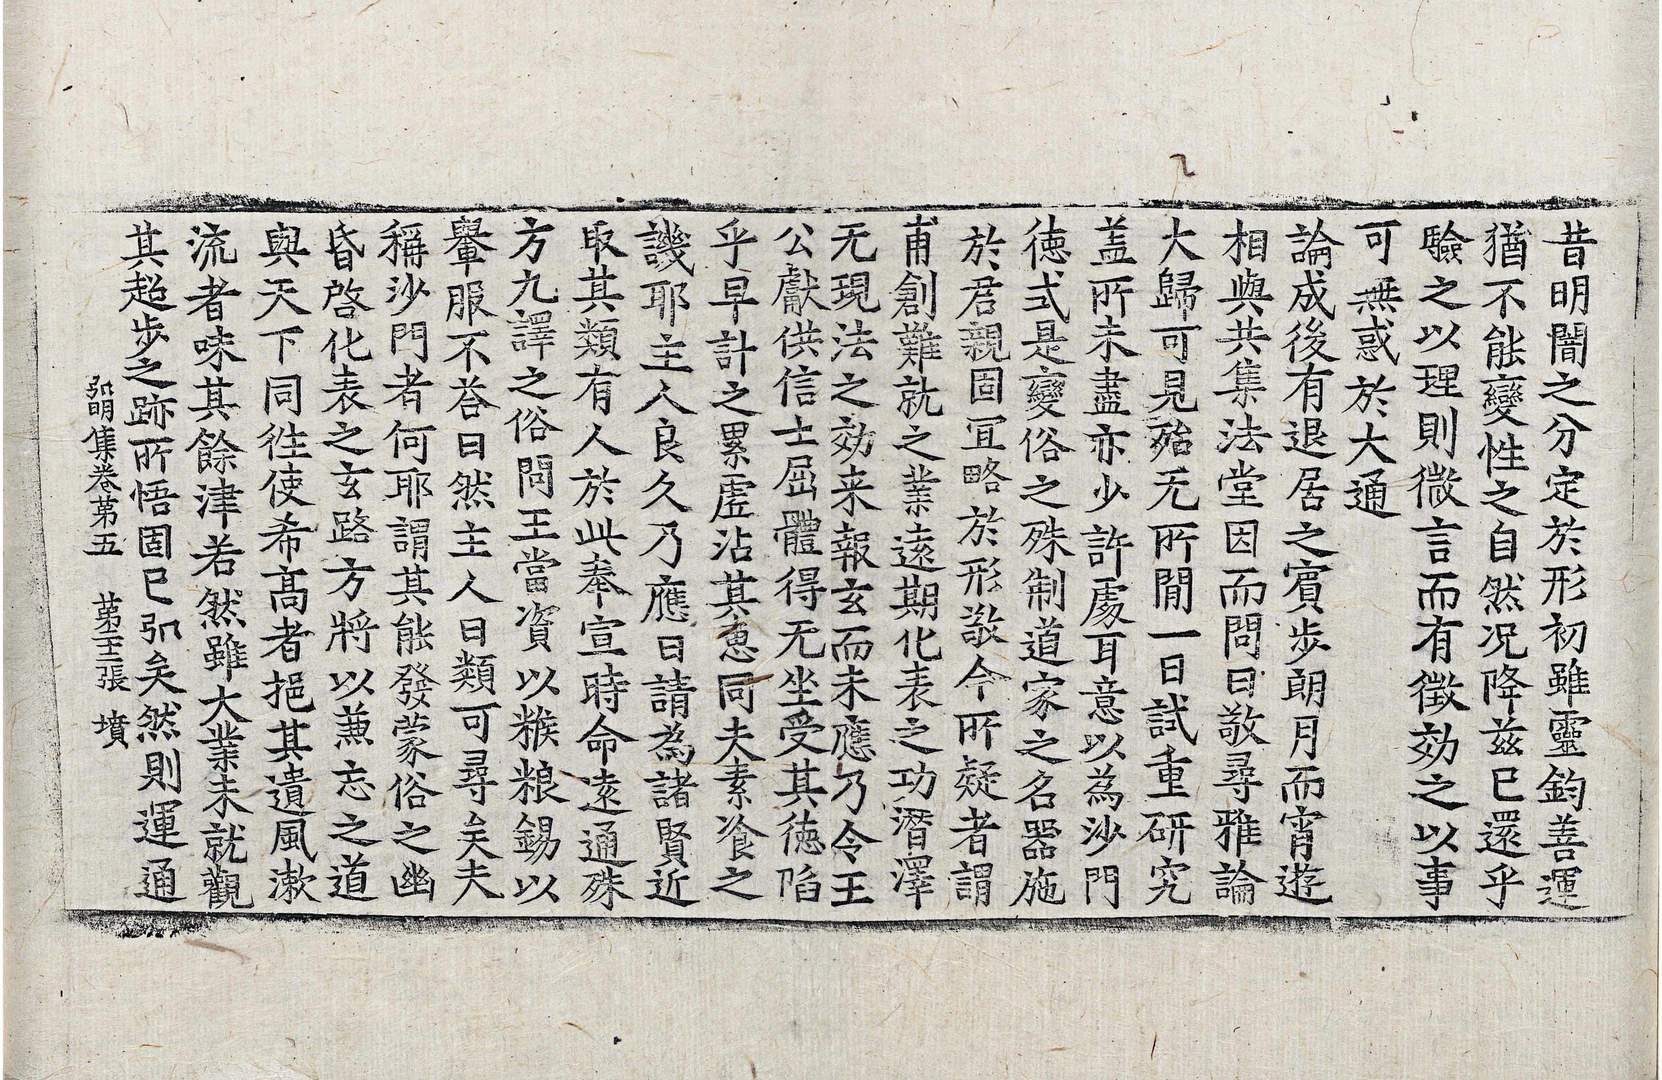 昔明闇之分定於形初雖靈鈞善運
猶不能變性之自然况降兹已還乎
驗之以理則微言而有徵効之以事
可無惑於大通
論成後有退居之賓步朗月而宵遊
相與共集法堂因而問曰敬尋雅論
大歸可見殆无所間一日試重研究
盖所未盡亦少許處耳意以為沙門
徳式是變俗之殊制道家之名器施
於君親固冝略於形敬今所疑者謂
甫創難就之業遠期化表之功潛澤
无現法之効来報玄而未應乃令王
公獻供信士屈體得无坐受其徳陷
乎早計之累虛沾其惠同夫素飡之
譏耶主人良久乃應曰請為諸賢近
取其類有人於此奉宣時命遠通殊
方九譯之俗問王當資以糇粮錫以
轝服不荅曰然主人曰類可尋矣夫
稱沙門者何耶謂其能發蒙俗之幽
昏啓化表之玄路方將以兼忘之道
與天下同徃使希高者挹其遺風漱
流者味其餘津若然雖大業未就觀
其超步之跡所悟固已弘矣然則運通
弘明集卷第五 第二十三張 墳